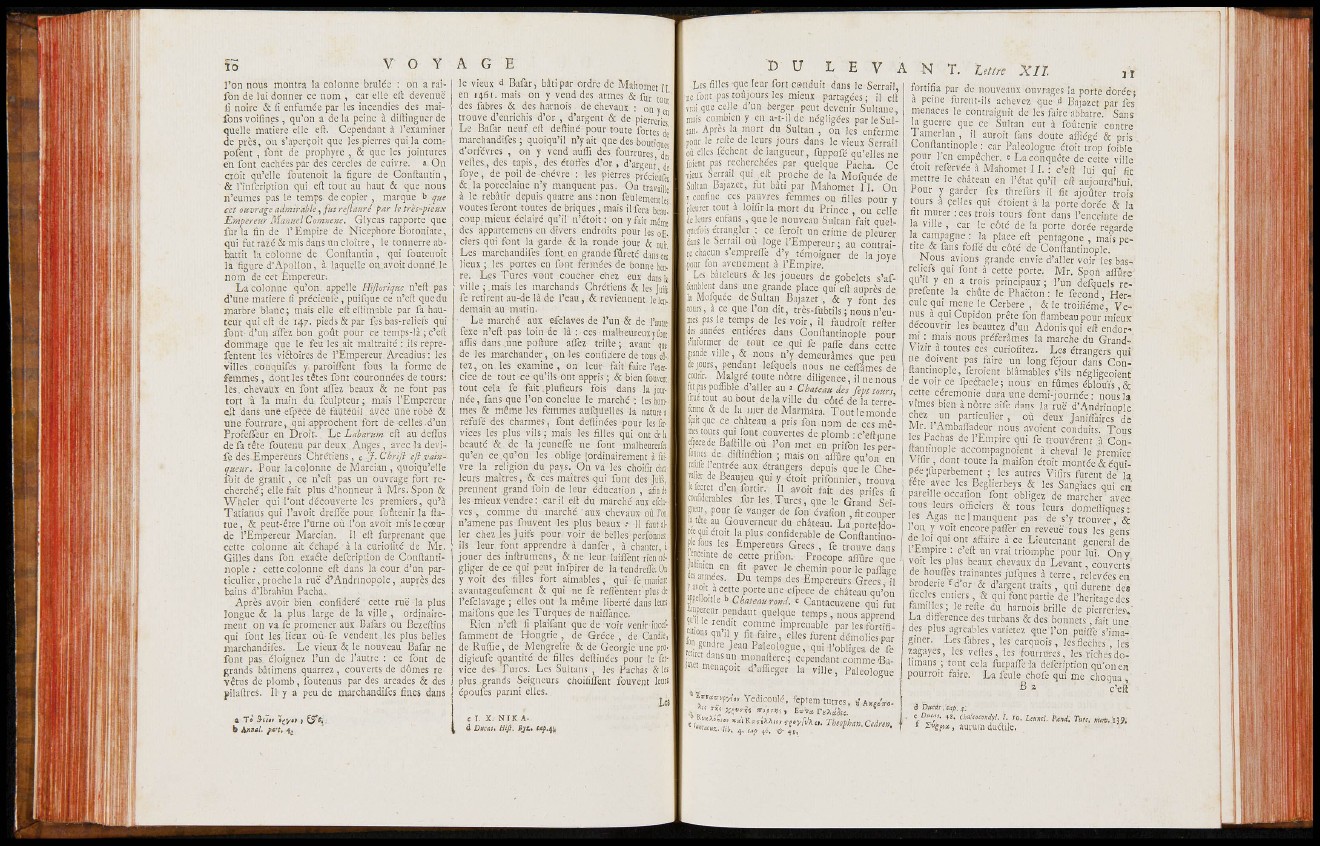 10 VOYAGE
l'on nous montra la colonne brulée : on a rai-
son de lui donner ce nom , car elle est devenuë
si noire & si enfumée par les incendies des mai-
sons voisines , qu'on a de la peine à distinguer de
quelle matiere elle est. Cependant à l'examiner
de près, on s'aperçoit que les pierres qui la com-
posent , sont de prophyre , & que les jointures
en sont cachées par des cercles de cuivre. a On
croit qu'elle soutenoit la figure de Constantin ,
& l'inscription qui est tout au haut & que nous
n'eumes pas le temps de copier , marque b que
cet ouvrage admirable , fut restauré par le très-pieux
Empereur Manuel Comnene. Glycas rapporte que
sur la fin de l'Empire de Nicephore Botoniate,
qui fut razé & mis dans un cloître , le tonnerre ab-
battit la colonne de Constantin , qui soutenoit
la figure d'Apollon , à laquelle on avoit donné le
nom de cet Empereur.
La colonne qu'on appelle Historique n'est pas
d'une matiere si précieuse , puisque ce n'est que du
marbre blanc; mais elle est estimable par sa hau-
teur qui est de 147. pieds & par ses bas-reliefs qui
sont d'un assez bon goût pour ce temps-là ; c'est
dommage que le feu les ait maltraité : ils repre-
sentent les victoires de l'Empereur Arcadius: les
villes conquises y paroissent sous la forme de
femmes , dont les têtes sont couronnées de tours:
les chevaux en sont assez beaux & ne font pas
tort à la main du sculpteur; mais l'Empereur
est dans une espece de fauteuil avec une robe &
une fourrure, qui approchent fort de celles d'un
Professeur en Droit. Le Labarum est au dessus
de sa tête soutenu par deux Anges, avec la devi-
se des Empereurs Chrétiens , c J. Christ est vain-
queur. Pour la colonne de Marcian , quoiqu'elle
soit de granit , ce n'est pas un ouvrage fort re-
cherché; elle fait plus d'honneur à Mrs. Spon &
Wheler qui l'ont découverte les premiers, qu'à
Tatianus qui l'avoit dressée pour soûtenir la sta-
tue, & peut-être l'urne où l'on avoit mis le cœur
de l'Empereur Marcian. Il est surprenant que
cette colonne ait échapé à la curiosité de Mr.
Gilles dans son exacte description de Constanti-
nople : cette colonne est dans la cour d'un par-
ticulier, proche la ruë d'Andrinopole , auprès des
bains d'Ibrahim Pacha.
Après avoir bien consideré cette ruë la plus
longue & la plus large de la ville , ordinaire-
ment on va se promener aux Basars ou Bezestins
qui sont les lieux où se vendent les plus belles
marchandises. Le vieux & le nouveau Basar ne
sont pas éloignez l'un de l'autre : ce sont de
grands bâtimens quarrez , couverts de dômes re-
vêtus de plomb , soutenus par des arcades & des
pilastres. Il y a peu de marchandises fines dans
b Annal. part. 4.
le vieux d Basar, bâti par ordre de Mahomet II.
en 1461. mais on y vend des armes & sur tout
des sabres & des harnois de chevaux : on y en
trouve d'enrichis d'or , d'argent & de pierreries.
Le Basar neuf est destiné pour toute sortes de
marchandises ; quoiqu'il n'y ait que des boutiques
d'orfévres , on y vend aussi des fourrures, des
vestes, des tapis, des étoffes d'or , d'argent, de
soye , de poil de chévre : les pierres précieuses
& la porcelaine n'y manquent pas. On travaille
à le rebâtir depuis quatre ans : non seulement les
voutes seront toutes de briques , mais il sera beau-
coup mieux éclairé qu'il n'étoit : on y fait même
des appartemens en divers endroits pour les offi-
ciers qui font la garde & la ronde jour & nuit.
Les marchandises sont en grande sûreté dans ces
lieux ; les portes en sont fermées de bonne heu-
re. Les Turcs vont coucher chez eux dans la
ville ; mais les marchands Chrétiens & les Juifs
se retirent au-de là de l'eau , & reviennent le len-
demain au matin.
Le marché aux esclaves de l'un & de l'autre
sexe n'est pas loin de là : ces malheureux y sont
assis dans une posture assez triste ; avant que
de les marchander , on les considere de tous cô-
tez, on les examine , on leur fait faire l'exer-
cice de tout ce qu'ils ont appris ; & bien souvent
tout cela se fait plusieurs fois dans la jour-
née , sans que l'on conclue le marché : les hom-
mes & même les femmes ausquelles la nature a
refusé des charmes, sont destinées pour les ser-
vices les plus vils ; mais les filles qui ont de la
beauté & de la jeunesse ne sont malheureuses
qu'en ce qu'on les oblige ordinairement à sui-
vre la religion du pays. On va les choisir chez
leurs maîtres, & ces maîtres qui sont des Juifs,
prennent grand soin de leur éducation , afin de
les mieux vendre : car il est du marché aux escla-
ves , comme du marché aux chevaux où l'on
n'amene pas souvent les plus beaux : il faut al-
ler chez les Juifs pour voir de belles personnes:
ils leur font apprendre à danser , à chanter, à
jouer des instrumens, & ne leur laissent rien né-
gliger de ce qui peut inspirer de la tendresse. On
y voit des filles fort aimables , qui se marient
avantageusement & qui ne se ressentent plus de
l'esclavage ; elles ont la même liberté dans leurs
maisons que les Turques de naissance.
Rien n'est si plaisant que de voir venir inces-
samment de Hongrie , de Gréce , de Candie,
de Russie, de Mengrelie & de Georgie une pro-
digieuse quantité de filles destinées pour le ser-
vice des Turcs. Les Sultans , les Pachas & les
plus grands Seigneurs choisissent souvent leurs
épouses parmi elles.
Les
c I. X. NIKA.
d Ducas. Hist. Byz. cap. 42
DU LEVANT. Lettre XII. 11
Les filles que leur sort conduit dans le Serrail,
ne sont pas toûjours les mieux partagées ; il est
vrai que celle d'un berger peut devenir Sultane,
mais combien y en a-t-il de négligées par le Sul-
tan. Après la mort du Sultan , on les enferme
pour le reste de leurs jours dans le vieux Serrail
où elles séchent de langueur , supposé qu'elles ne
soient pas recherchées par quelque Pacha. Ce
vieux Serrail qui est proche de la Mosquée de
Sultan Bajazet, fut bâti par Mahomet II. On
y confine ces pauvres femmes ou filles pour y
pleurer tout à loisir la mort du Prince , ou celle
de leurs enfans , que le nouveau Sultan fait quel-
quefois étrangler : ce seroit un crime de pleurer
dans le Serrail où loge l'Empereur; au contrai-
re chacun s'empresse d'y témoigner de la joye
pour son avenement à l'Empire.
Les bâteleurs & les joueurs de gobelets s'as-
semblent dans une grande place qui est auprès de
la Mosquée de Sultan Bajazet , & y font des
tours , à ce que l'on dit, très-subtils ; nous n'eu-
mes pas le temps de les voir , il faudroit rester
des années entiéres dans Constantinople pour
s'informer de tout ce qui se passe dans cette
grande ville , & nous n'y demeurâmes que peu
de jours, pendant lesquels nous ne cessâmes de
courir. Malgré toute nôtre diligence, il ne nous
fut pas possible d'aller au a Chateau des sept tours,
situé tout au bout de la ville du côté de la terre-
ferme & de la mer de Marmara. Tout le monde
sçait que ce château a pris son nom de ces mê-
mes tours qui sont couvertes de plomb : c'est une
espece de Bastille où l'on met en prison les per-
sonnes de distinction ; mais on assûre qu'on en
refuse l'entrée aux étrangers depuis que le Che-
valier de Beaujeu qui y étoit prisonnier, trouva
le secret d'en sortir. Il avoit fait des prises si
considerables sur les Turcs, que le Grand Sei-
gneur , pour se vanger de son évasion , fit couper
la tête au Gouverneur du château. La porte do-
rée qui étoit la plus considerable de Constantino-
ple sous les Empereurs Grecs , se trouve dans
l'enceinte de cette prison. Procope assûre que
Justinien en fit paver le chemin pour le passage
des armées. Du temps des Empereurs Grecs, il
y avoit à cette porte une espece de château qu'on
appelloit le b Chateau rond. c Cantacuzene qui fut
Empereur pendant quelque temps , nous apprend
qu'il le rendit comme imprenable par les fortifi-
cations qu'il y fit faire , elles furent démolies par
son gendre Jean Paleologue, qui l'obligea de se
retirer dans un monastere; cependant comme Ba-
jazet menaçoit d'assieger la ville, Paleologue
Yedicoulé, septem turres,
Theophan. Cedren.
fortifia par de nouveaux ouvrages la porte dorée;
à peine furent-ils achevez que d Bajazet par ses
menaces le contraignit de les faire abbatre. Sans
la guerre que ce Sultan eut à soûtenir contre
Tamerlan , il auroit sans doute assiégé & pris
Constantinople : car Paleologue étoit trop foible
pour l'en empêcher. e La conquête de cette ville
étoit reservée à Mahomet II. : c'est lui qui fit
mettre le château en l'état qu'il est aujourd'hui.
Pour y garder ses thresors il fit ajoûter trois
tours à celles qui étoient à la porte dorée & la
fit murer : ces trois tours sont dans l'enceinte de
la ville , car le côté de la porte dorée regarde
la campagne : la place est pentagone , mais pe-
tite & sans fossé du côté de Constantinople.
Nous avions grande envie d'aller voir les bas-
reliefs qui sont à cette porte. Mr. Spon assûre
qu'il y en a trois principaux ; l'un desquels re-
presente la chûte de Phaëton : le second, Her-
cule qui mene le Cerbere , & le troisiéme, Ve-
nus à qui Cupidon prête son flambeau pour mieux
découvrir les beautez d'un Adonis qui est endor-
mi : mais nous préferâmes la marche du Grand-
Vizir à toutes ces curiositez. Les étrangers qui
ne doivent pas faire un long séjour dans Con-
stantinople, seroient blâmables s'ils négligeoient
de voir ce spectacle; nous en fûmes éblouïs , &
cette céremonie dura une demi-journée : nous la
vîmes bien à nôtre aise dans la ruë d'Andrinople
chez un particulier , où deux Janissaires de
Mr. l'Ambassadeur nous avoient conduits. Tous
les Pachas de l'Empire qui se trouvérent à Con-
stantinople accompagnoient à cheval le premier
Visir , dont toute la maison étoit montée & équi-
pée superbement ; les autres Visirs furent de la
fête avec les Beglierbeys & les Sangiacs qui en
pareille occasion sont obligez de marcher avec
tous leurs officiers & tous leurs domestiques:
les Agas ne manquent pas de s'y trouver , &
l'on y voit encore passer en reveuë tous les gens
de loi qui ont affaire à ce Lieutenant general de
l'Empire : c'est un vrai triomphe pour lui. On y
voit les plus beaux chevaux du Levant , couverts
de housses trainantes jusques à terre , relevées en
broderie f d'or & d'argent traits , qui durent des
siecles entiers , & qui font partie de l'heritage des
familles ; le reste du harnois brille de pierreries.
La difference des turbans & des bonnets , fait une
des plus agreables varietez que l'on puisse s'ima-
giner. Les sabres, les carquois , les fleches , les
zagayes, les vestes , les fourrures , les riches do-
limans ; tout cela surpasse la description qu'on en
pourroit faire. La seule chose qui me choqua ,
B 2 c'est
d Ducas. cap. 4.
f aurum ductile.